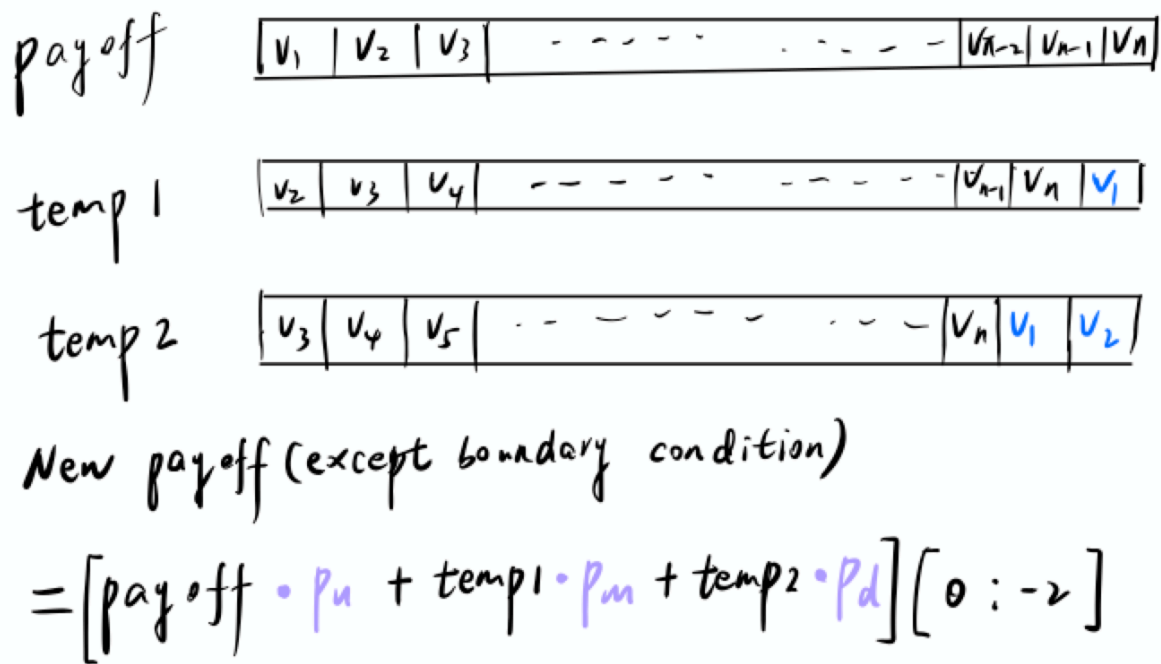 payoff V₁ | V₂ | V₃ | - - - - - - - - - | Vn-2 | Vn-1 | Vn
temp 1 V₂ | V₃ | V₄ | - - - - - - - - - | Vn-1 | Vn | V₁
temp 2 V₃ | V₄ | V₅ | - - - - - - - - - | Vn | V₁ | V₂
New payoff (except boundary condition)
= [payoff · pu + temp1 · pm + temp2 · pd] [0 : -2]